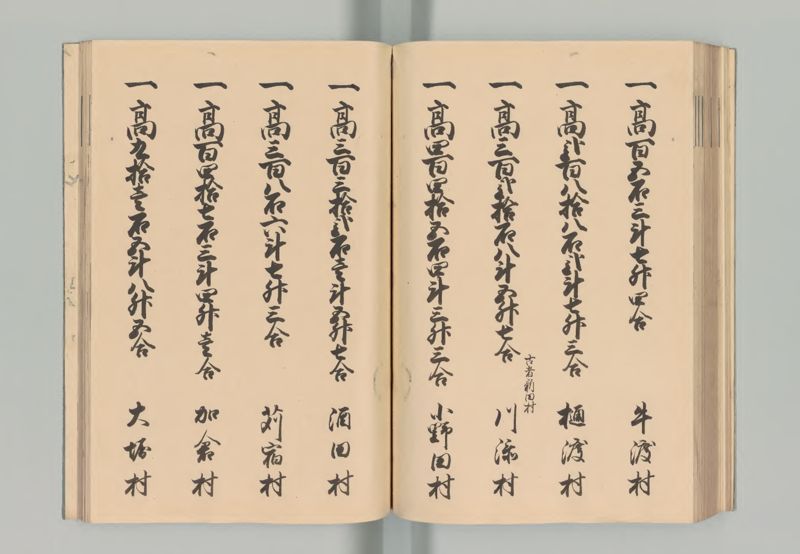 一高百五石三斗七升四合 牛渡村
一高弐百八拾八石弐斗七升三合 樋渡村
一高三百弐拾石八斗五升七合 川添村
古者新田村
一高四百四拾五石四斗三升三合 小野田村
一高三百三拾弐石壱斗五升七合 酒田村
一高三百八石六斗七升三合 苅宿村
一高百四拾七石三斗四升壱合 加倉村
一高九拾壱石五斗八升五合 大堀村